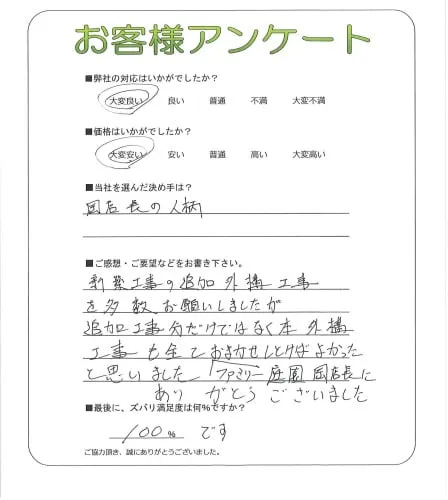 お客様アンケート
■弊社の対応はいかがでしたか?
大変良い 良い 普通 不満 大変不満
■価格はいかがでしたか?
大変安い 安い 普通 高い 大変高い
■当社を選んだ決め手は?
岡店長の人柄
■ご感想・ご要望などをお書き下さい。
新築工事の追加外構工事
を多数お願いしましたが
追加工事分だけではなく本外構
工事も全ておまかせしとけばよかった
と思いました ファミリー庭園 岡店長に
ありがとうございました
■最後に、ズバリ満足度は何%ですか?
100%です
ご協力頂き、誠にありがとうございました。